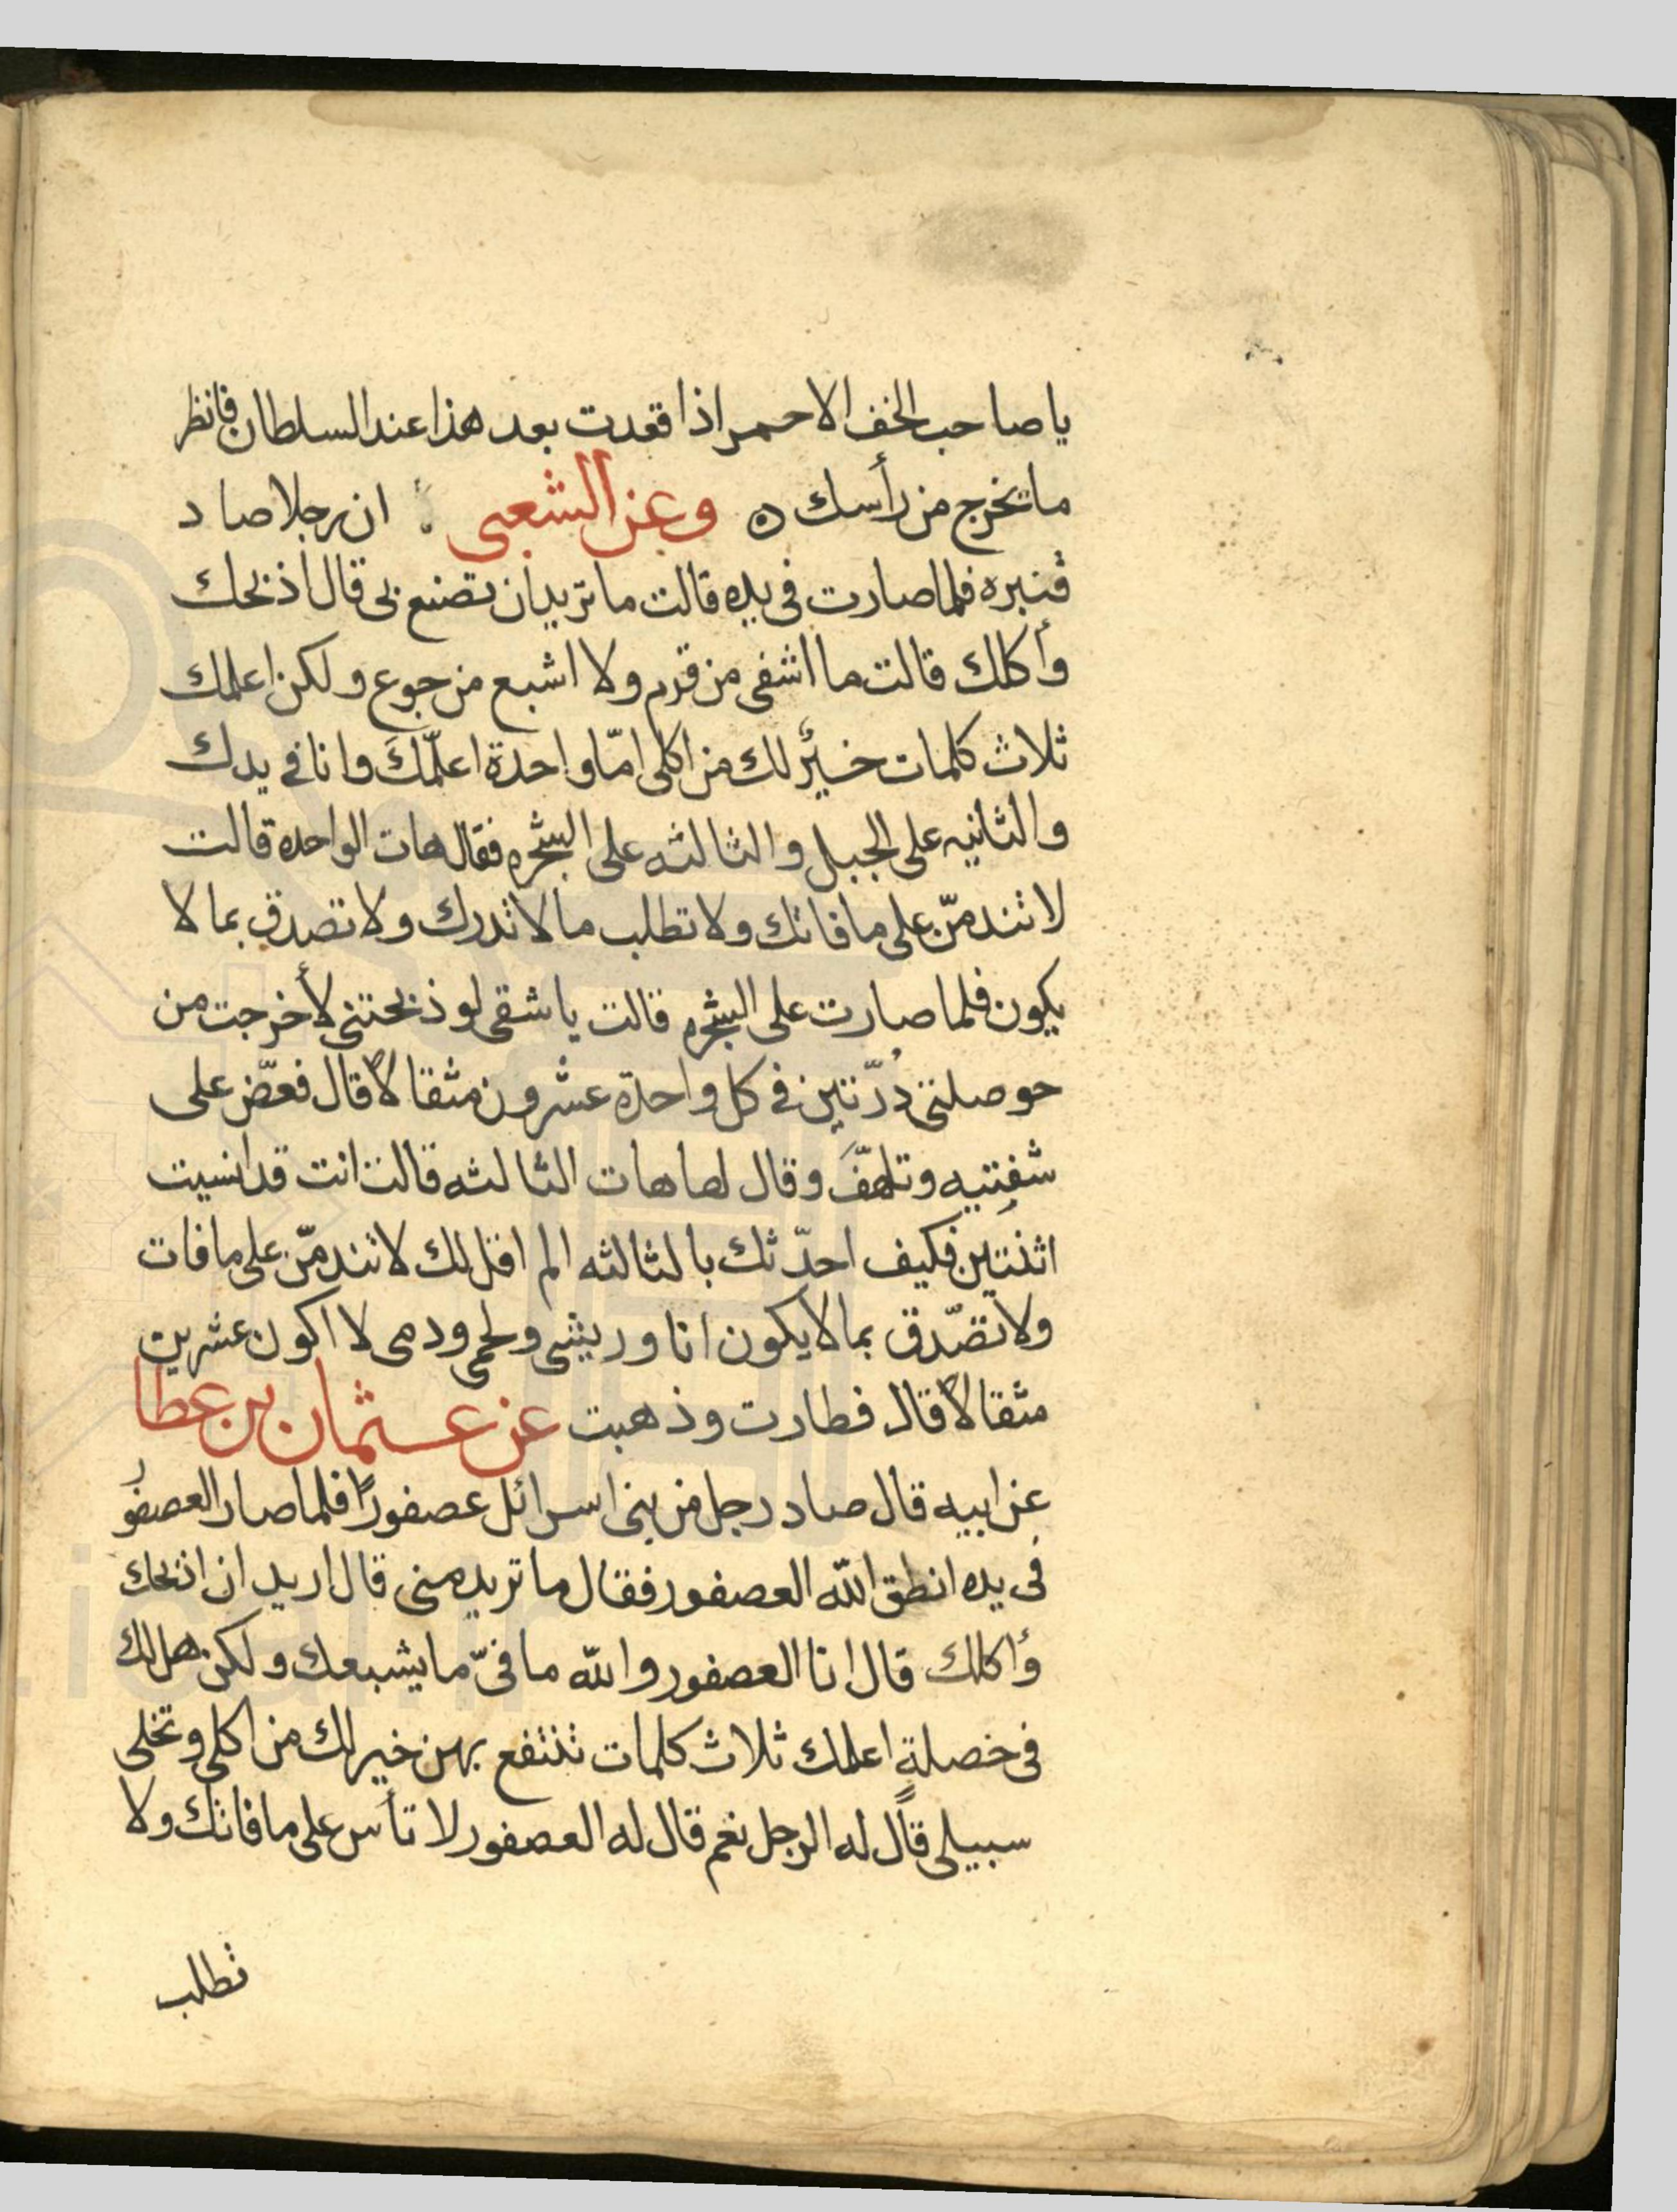 يا صاحب الخف الاحمر اذا قعدت بعد هذا عند السلطان فانظر
ما يخرج من رأسك ه وعن الشعبى ان رجلا صاد
قنبره فلما صارت فى يده قالت ما تريد ان تصنع بى قال اذبحك
وأكلك قالت ما اشفى من قرم ولا اشبع من جوع ولكن اعلمك
ثلاث كلمات خيرٌ لك من اكلى امّا واحدة اعلّمكَ وانا في يدك
والثانيه على الجبل والثالثه على الشجره فقال هات الواحده قالت
لا تندمنّ على ما فاتك ولا تطلب ما لا تدرك ولا تصدق بما لا
يكون فلما صارت على الشجره قالت يا شقى لو ذبحتنى لأخرجت من
حوصلتى دُرّتين في كل واحدة عشرون مثقالاً قال فعضّ على
شفتيه وتلهّفَ وقال لها هات الثالثه قالت انت قد انسيت
اثنتين فكيف احدّثك بالثالثه الم اقل لك لا تندمنّ على ما فات
ولا تصّدق بما لا يكون انا وريشى ولحمى ودمى لا اكون عشرين
مثقالاً قال فطارت وذهبت عن عثمان بن عطا
عن ابيه قال صاد رجل من بنى اسرائل عصفورًا فلما صار العصفور
فى يده انطق الله العصفور فقال ما تريد منى قال اريد ان اذبحك
وأكلك قال انا العصفور والله ما فىّ ما يشبعك ولكن هل لك
فى خصلةٍ اعلمك ثلاث كلمات تنتفع بهن خير لك من اكلى وتخلى
سبيلى قال له الرجل نعم قال له العصفور لا تأس على ما فاتك ولا
تطلب